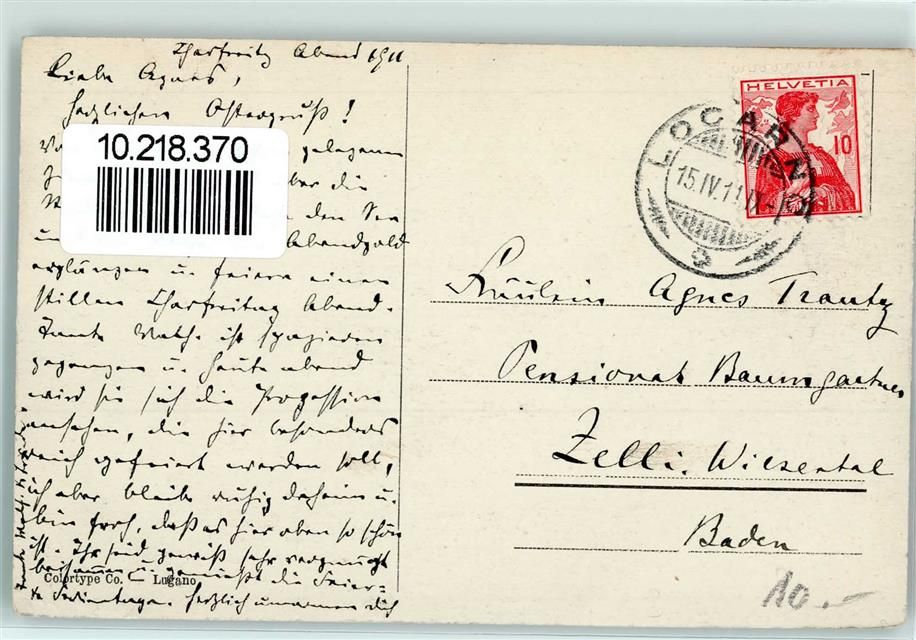 Charfreitg Abend 1911
Liebe Agnes,
herzlichen Ostergruß!
10.218.370
gelegenen
über die
den See
Abendgold
erglänzen u. feiern einen
stillen Charfreitag Abend.
Tante Math. ist spazieren
gegangen u. heute abend
wird sie sich die Prozession
ansehen, die hier besonders
reich gefeiert werden soll,
ich aber bleibe ruhig daheim u.
bin froh, daß es hier oben so schön
ist. Ihr seid gewiß sehr vergnügt
beisammen u. genießt die Feier-
Ferientage. Herzlich umarmen dich
Colortype Co. Lugano
HELVETIA
10
LOCARNO
15.IV.11.IX
Fräulein Agnes Trautz
Pensionat Baumgartner
Zell i. Wiesental
Baden
10.-